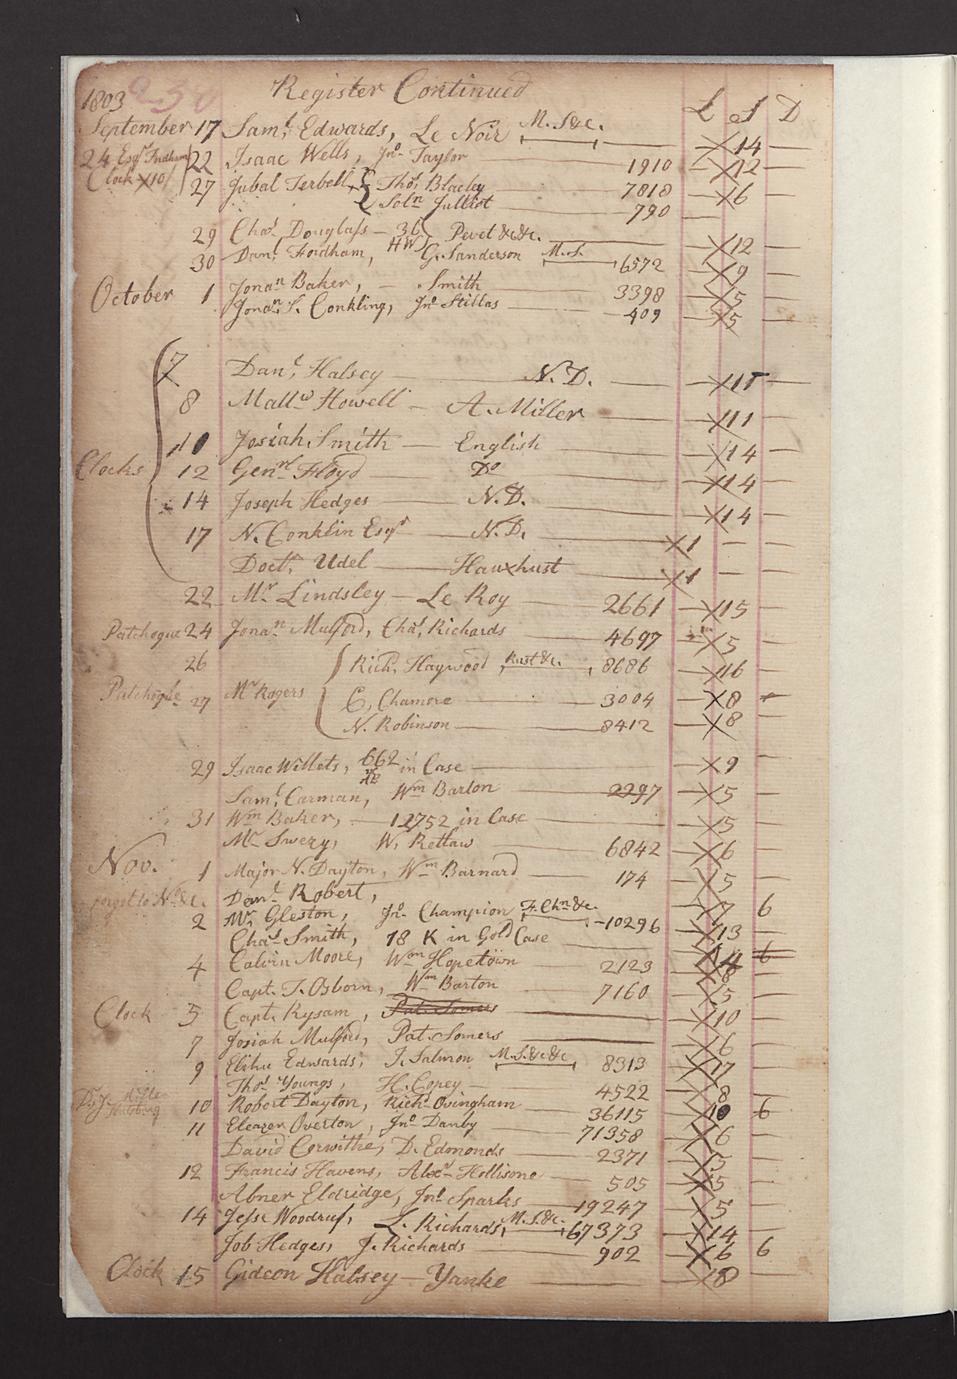 1803 Register Continued
£ S D
September 17 Saml. Edwards, Le Noir M. S&c. 14
24 Esqr. Fordham 22 Isaac Wells, Jno. Taylor 1910 12
Clock X10/ 27 Jubal Terbell, { Thos. Blackly 7818 6
Soln Julliot 790
29 Chas. Douglass — 36 Pevet &c&c. 12
30 Danl. Fordham, HW G. Sanderson M.S. 6572 9
October 1 Jonan. Baker, — Smith 3398 5
Jonan. S. Conkling, Jno. Stillas 409 5
7 Danl. Halsey N.D. 15
8 Mattw Howell — A. Miller 11
10 Josiah Smith — English 14
Clocks 12 Genrl. Floyd Do 14
14 Joseph Hedges N.D. 14
17 N. Conklin Esqr N.D. 1 — —
Doctr. Udel Hauxhust 1 — —
22 Mr Lindsley — Le Roy 2661 15
Patchogue 24 Jonan. Mulford, Chas. Richards 4697 5
26 Rich. Haywood, Rust &c. 8686 16
Patchogue 27 Mr Rogers C, Chamore 3004 8
N. Robinson 8412 8
29 Isaac Willets, 662 in Case 9
Saml. Carman, Wm Barton 2297 5
31 Wm Baker, — 12752 in Case 5
Mr Swezy, W. Rettaw 6842 6
Nov. 1 Major N. Dayton, Wm Barnard 174 5
Danl. Robert,
2 Mr. Gleston, Jno. Champion F. Chn &c. 10296 7 6
Chas. Smith, 18 K in Gold Case 13
4 Calvin Moore, Wm Hopetown 2123 8
Capt. T. Osborn, Wm Barton 7160 5
Clock 5 Capt. Rysam, Pat. Somers 10
7 Josiah Mulford, Pat. Somers 6
9 Elihu Edwards, J. Salmon M. S. &c &c 8313 17
Thos. Youngs, H. Copey — 4522 8
10 Robert Dayton, Richd. Ovingham 36115 10 6
11 Eleazer Overton, Jno. Danby 71358 6
David Corwithe, D. Edmonds 2371 5
12 Francis Havens, Alexr. Hollisone 505 5
Abner Eldridge, Jno. Sparks 19247 5
14 Jesse Woodruf, L. Richards, M. S. &c. 67373 14
Job Hedges, J. Richards 902 6 6
Clock 15 Gideon Halsey — Yanke 18